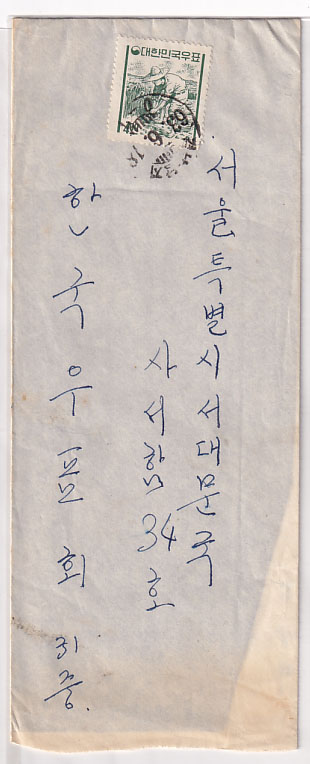 대한민국우표
63. 6.
서울특별시 서대문국
사서함 34호
한국우표회 귀중.